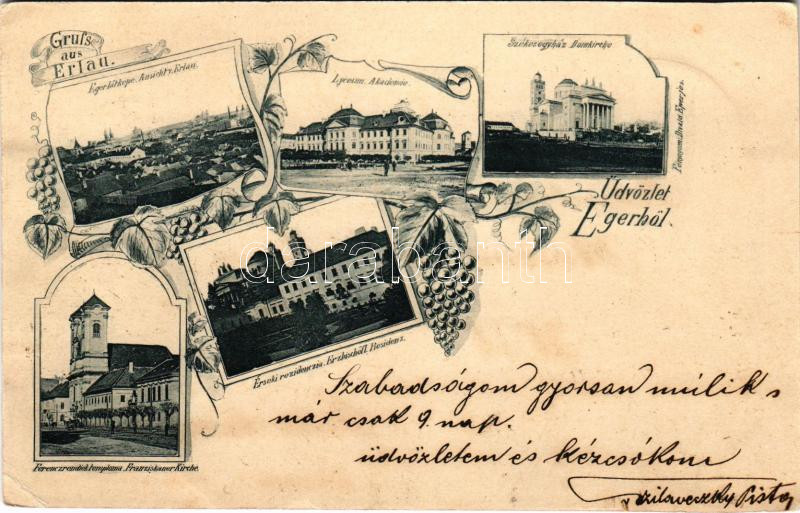 Gruss
aus
Erlau.
Eger látképe. Ansicht v. Erlau.
Lyceum. Akademie.
Székesegyház Domkirche
Üdvözlet
Egerből.
Érseki rezidenczia. Erzbischöfl. Residenz.
Ferenczrendiek temploma. Franziskaner Kirche.
darabanth
Szabadságom gyorsan múlik,
már csak 9 nap.
üdvözletem és kézcsókom
Pista